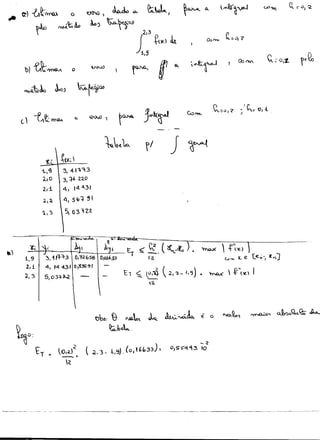 a) Estimar o erro, dado a tabela, para a integral com h = 0,2
pelo método dos trapézios
∫ 1,9 2,3 f(x) dx , com h = 0,2
b) Estimar o erro, para a integral, com h = 0,1 pelo
método dos trapézios
c) Estimar o erro, para Integral com h = 0,2 ; h = 0,1
tabela p/ ∫ geral
xi f(xi)
1,9 3,41773
2,0 3,76220
2,1 4,14431
2,2 4,56791
2,3 5,03722
a) xi yi Δyi
1,9 3,41773 0,72658 0,16633
2,1 4,14431 0,89291 —
2,3 5,03722 — —
ET ≤ h²/12 (xn - x0) . max | f''(x) |
com x ∈ [x0, xn]
ET ≤ (0,2)²/12 (2,3 - 1,9) . max | f''(x) |
Obs: O valor da derivada é o valor maior absoluto da
tabela.
Logo:
ET = (0,2)²/12 . (2,3 - 1,9) . (0,16633) =